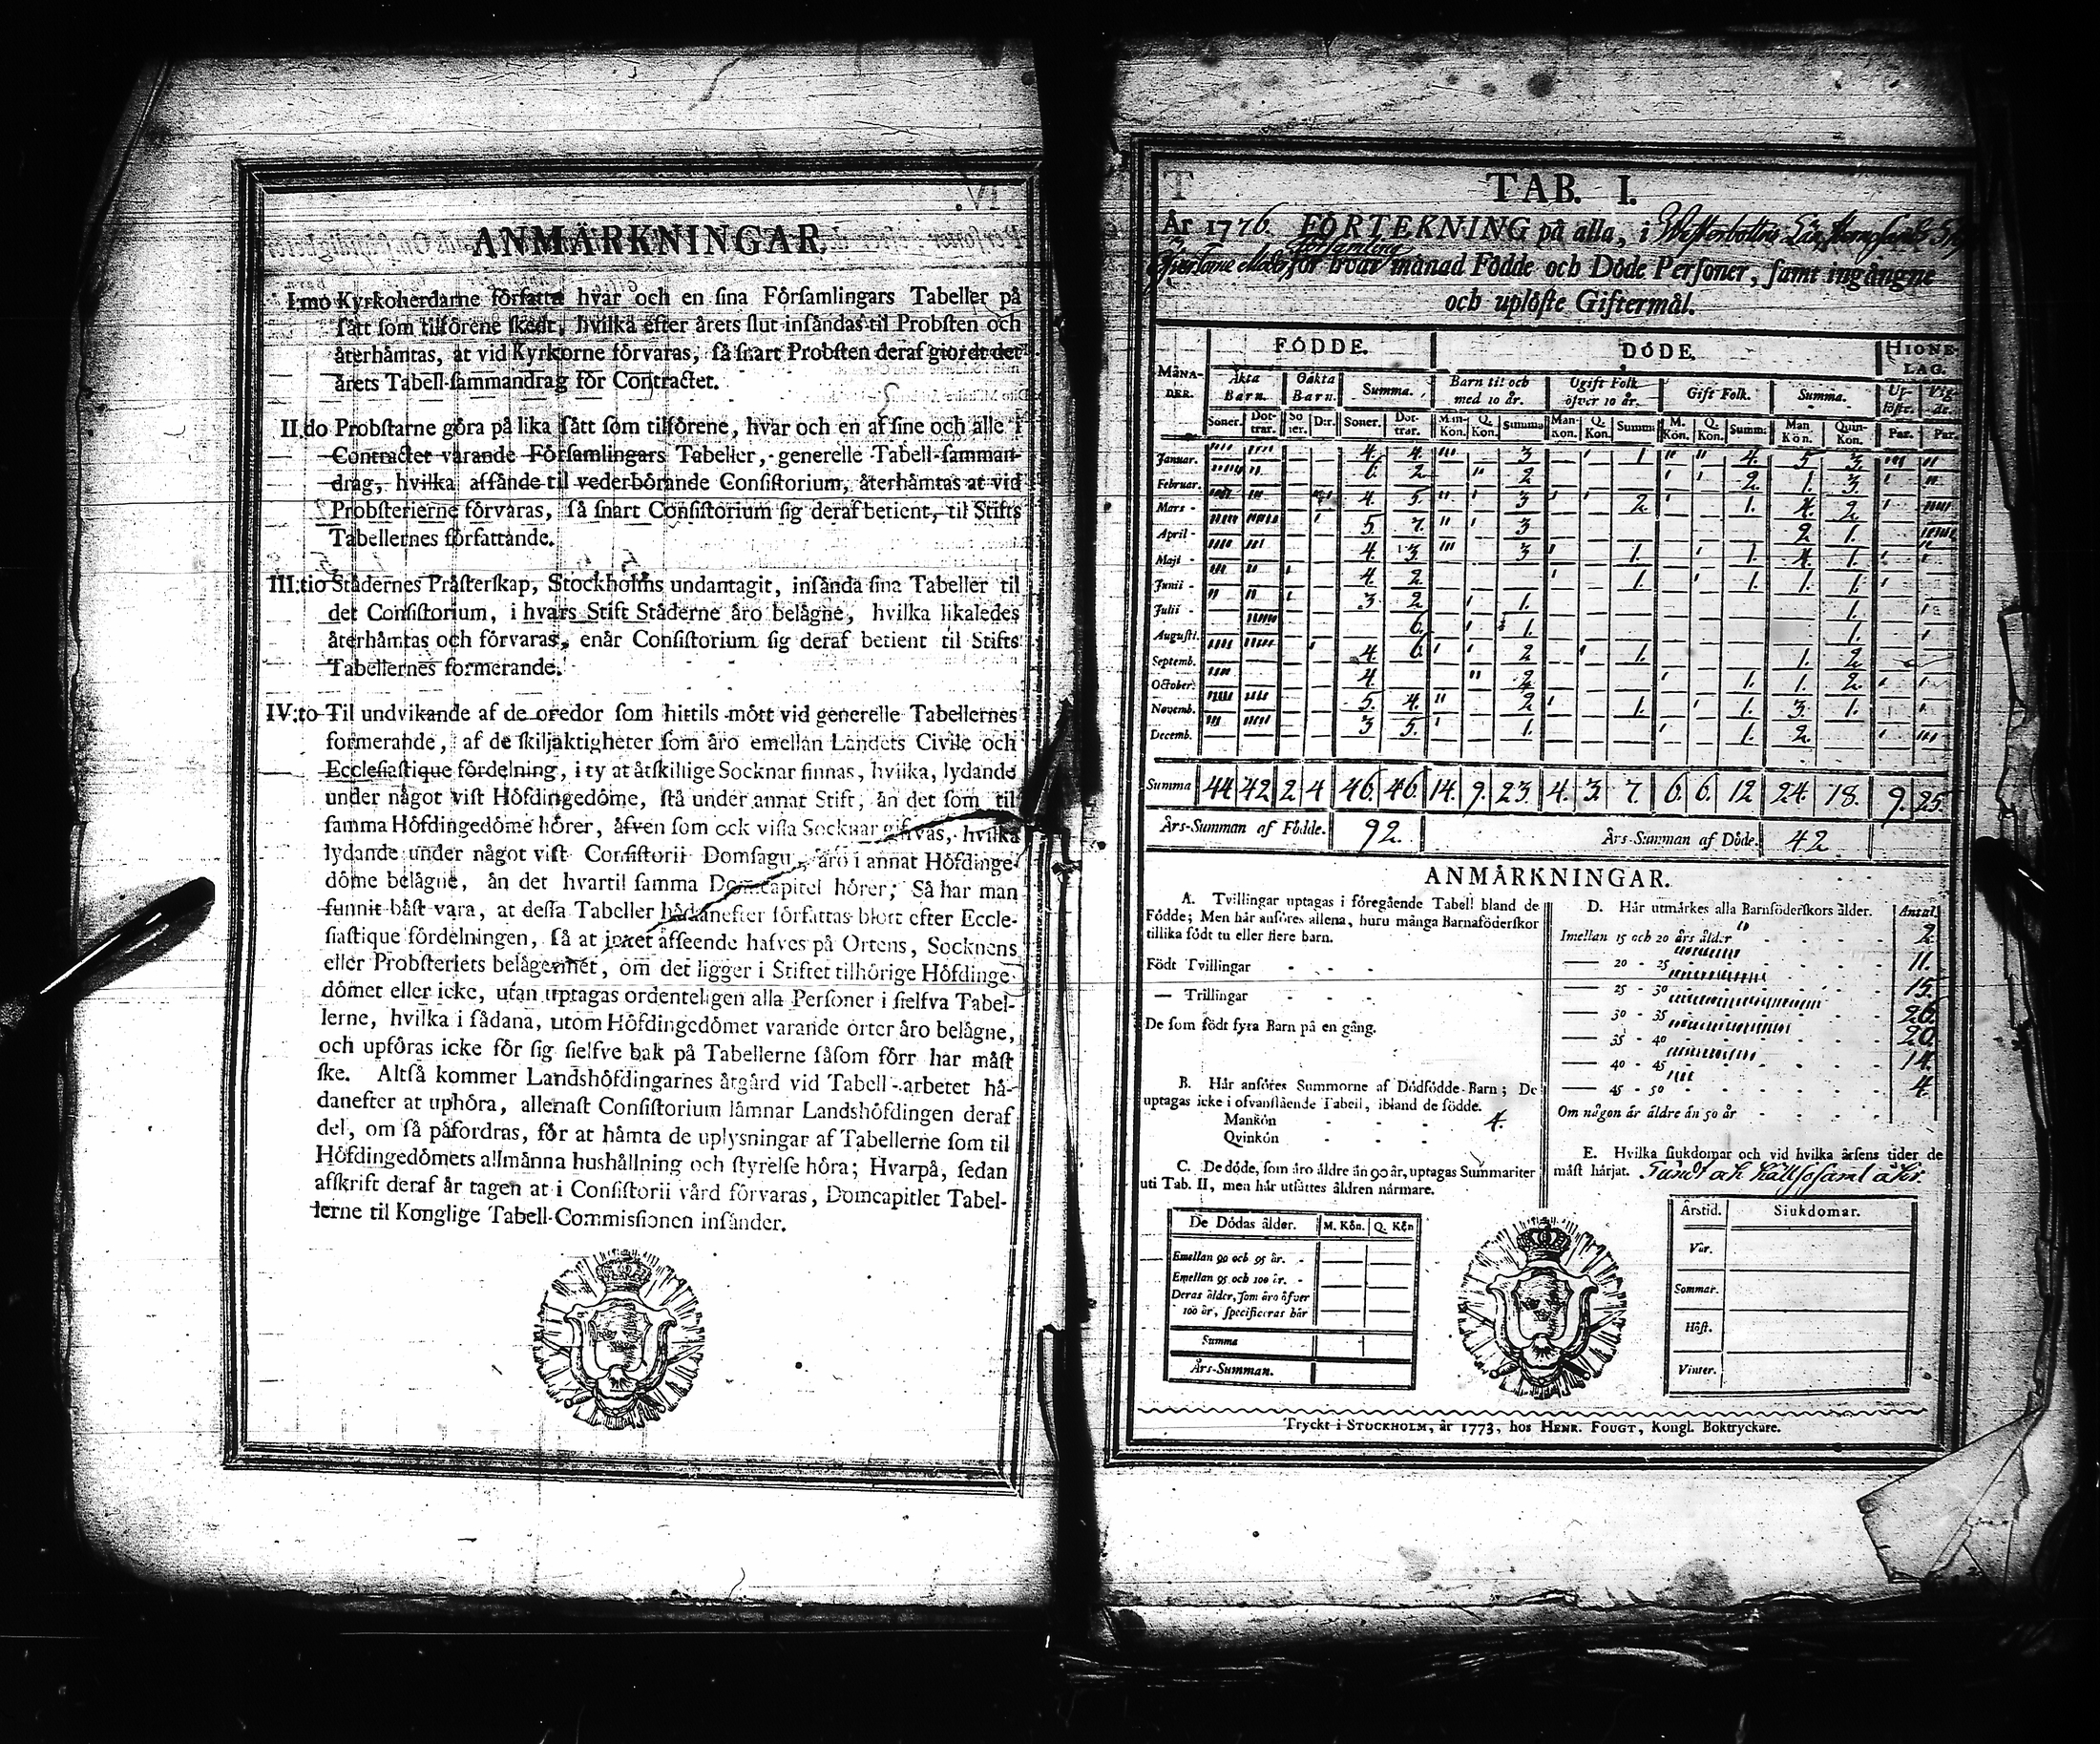 ANMÄRKNINGAR.
I:mo Kyrkoherdarne författa hvar och en sina Församlingars Tabeller på
sätt som tilförene skedt, hvilka efter årets slut insändas til Probsten och
återhämtas, at vid Kyrkorne förvaras, så snart Probsten deraf giordt det
årets Tabell-sammandrag för Contractet.
II:do Probstarne göra på lika sätt som tilförene, hvar och en af sine och alle i
Contractet varande Församlingars Tabeller, generelle Tabell-samman-
drag, hvilka afsände til vederbörande Consistorium, återhämtas at vid
Probsterierne förvaras, så snart Consistorium sig deraf betient, til Stifts
Tabellernes författande.
III:tio Städernes Prästerskap, Stockholms undantagit, insända sina Tabeller til
det Consistorium, i hvars Stift Städerne äro belägne, hvilka likaledes
återhämtas och förvaras, enär Consistorium sig deraf betient til Stifts
Tabellernes formerande.
IV:to Til undvikande af de oredor som hittils mött vid generelle Tabellernes
formerande, af de skiljaktigheter som äro emellan Landets Civile och
Ecclesiastique fördelning, i ty at åtskillige Socknar finnas, hvilka, lydande
under något vist Höfdingedöme, stå under annat Stift, än det som til
samma Höfdingedöme hörer, äfven som ock vissa Socknar gifvas, hvilka
lydande under något vist Consistorii Domsagu, äro i annat Höfdinge-
döme belägne, än det hvartil samma Domcapitel hörer; Så har man
funnit bäst vara, at dessa Tabeller hädanefter författas blott efter Eccle-
siastique fördelningen, så at intet afseende hafves på Ortens, Socknens
eller Probsteriets belägenhet, om det ligger i Stiftet tilhörige Höfdinge-
dömet eller icke, utan uptagas ordenteligen alla Personer i sielfva Tabel-
lerne, hvilka i sådana, utom Höfdingedömet varande orter äro belägne,
och upföras icke för sig sielfve bak på Tabellerne såsom förr har måst
ske. Altså kommer Landshöfdingarnes åtgärd vid Tabell-arbetet hä-
danefter at uphöra, allenast Consistorium lämnar Landshöfdingen deraf
del, om så påfordras, för at hämta de uplysningar af Tabellerne som til
Höfdingedömets allmänna hushållning och styrelse höra; Hvarpå, sedan
afskrift deraf är tagen at i Consistorii vård förvaras, Domcapitlet Tabel-
lerne til Konglige Tabell-Commissionen insänder.
TAB. I.
År 1776 FÖRTEKNING på alla, i Westerbottns Län
Församling för hvar månad Födde och Döde Personer, samt ingångne
och uplöste Giftermål.
FÖDDE. DÖDE. HIONE-LAG.
MÅNA-DER. Äkta Barn. Oäkta Barn. Summa. Barn til och med 10 år. Ogift Folk öfver 10 år. Gift Folk. Summa. Uplöste. Vigde.
Söner. Döttrar. Söner. D:r. Söner. Döttrar. Man-Kön. Q. Kön. Summa Man-kön. Q. Kön. Summa M. Kön. Q. Kön. Summ: Man Kön. Quin-Kön. Par. Par.
Januar. 4. 4. 3 1 4. 5 3.
Februar. 6. 2. 2 2. 1. 3.
Mars - 4 5 3 2. 1. 4. 2.
April - 5 7. 3 2 1.
Maji - 4. 3. 3 1. 1. 4. 1.
Junii - 4. 2. 1. 1. 1. 1.
Julii - 3 2. 1. 1.
Augusti. 6. 1. 1.
Septemb. 4. 6. 2 1. 1. 2
October. 4. 2 1. 1. 2.
Novemb. 5. 4. 2 1. 1. 3. 1.
Decemb. 3 5. 1. 1. 2.
Summa 44 42 2 4 46. 46 14. 9. 23. 4. 3. 7. 6. 6. 12 24. 18. 9. 25.
Års-Summan af Födde. 92. Års-Summan af Döde. 42
ANMÄRKNINGAR.
A. Tvillingar uptagas i föregående Tabell bland de
Födde; Men här anföres allena, huru många Barnaföderskor
tillika födt tu eller flere barn.
Födt Tvillingar - - -
— Trillingar - - -
De som födt fyra Barn på en gång.
B. Här anföres Summorne af Dödfödde Barn; De
uptagas icke i ofvanstående Tabell, ibland de födde.
Mankön - - - 4.
Qvinkön - - -
C. De döde, som äro äldre än 90 år, uptagas Summariter
uti Tab. II, men här utsättes åldren närmare.
De Dödas ålder. M. Kön. Q. Kön
Emellan 90 och 95 år. -
Emellan 95 och 100 år. -
Deras ålder, som äro öfver
100 år, specificeras här
Summa
Års-Summan.
D. Här utmärkes alla Barnföderskors ålder. Antal.
Imellan 15 och 20 års ålder 2.
— 20 - 25 11.
— 25 - 30 15.
— 30 - 35 26.
— 35 - 40 20.
— 40 - 45 14.
— 45 - 50 4.
Om någon är äldre än 50 år
E. Hvilka siukdomar och vid hvilka årsens tider de
mäst härjat.
Årstid. Siukdomar.
Vår.
Sommar.
Höst.
Vinter.
Tryckt i STOCKHOLM, år 1773, hos HENR. FOUGT, Kongl. Boktryckare.